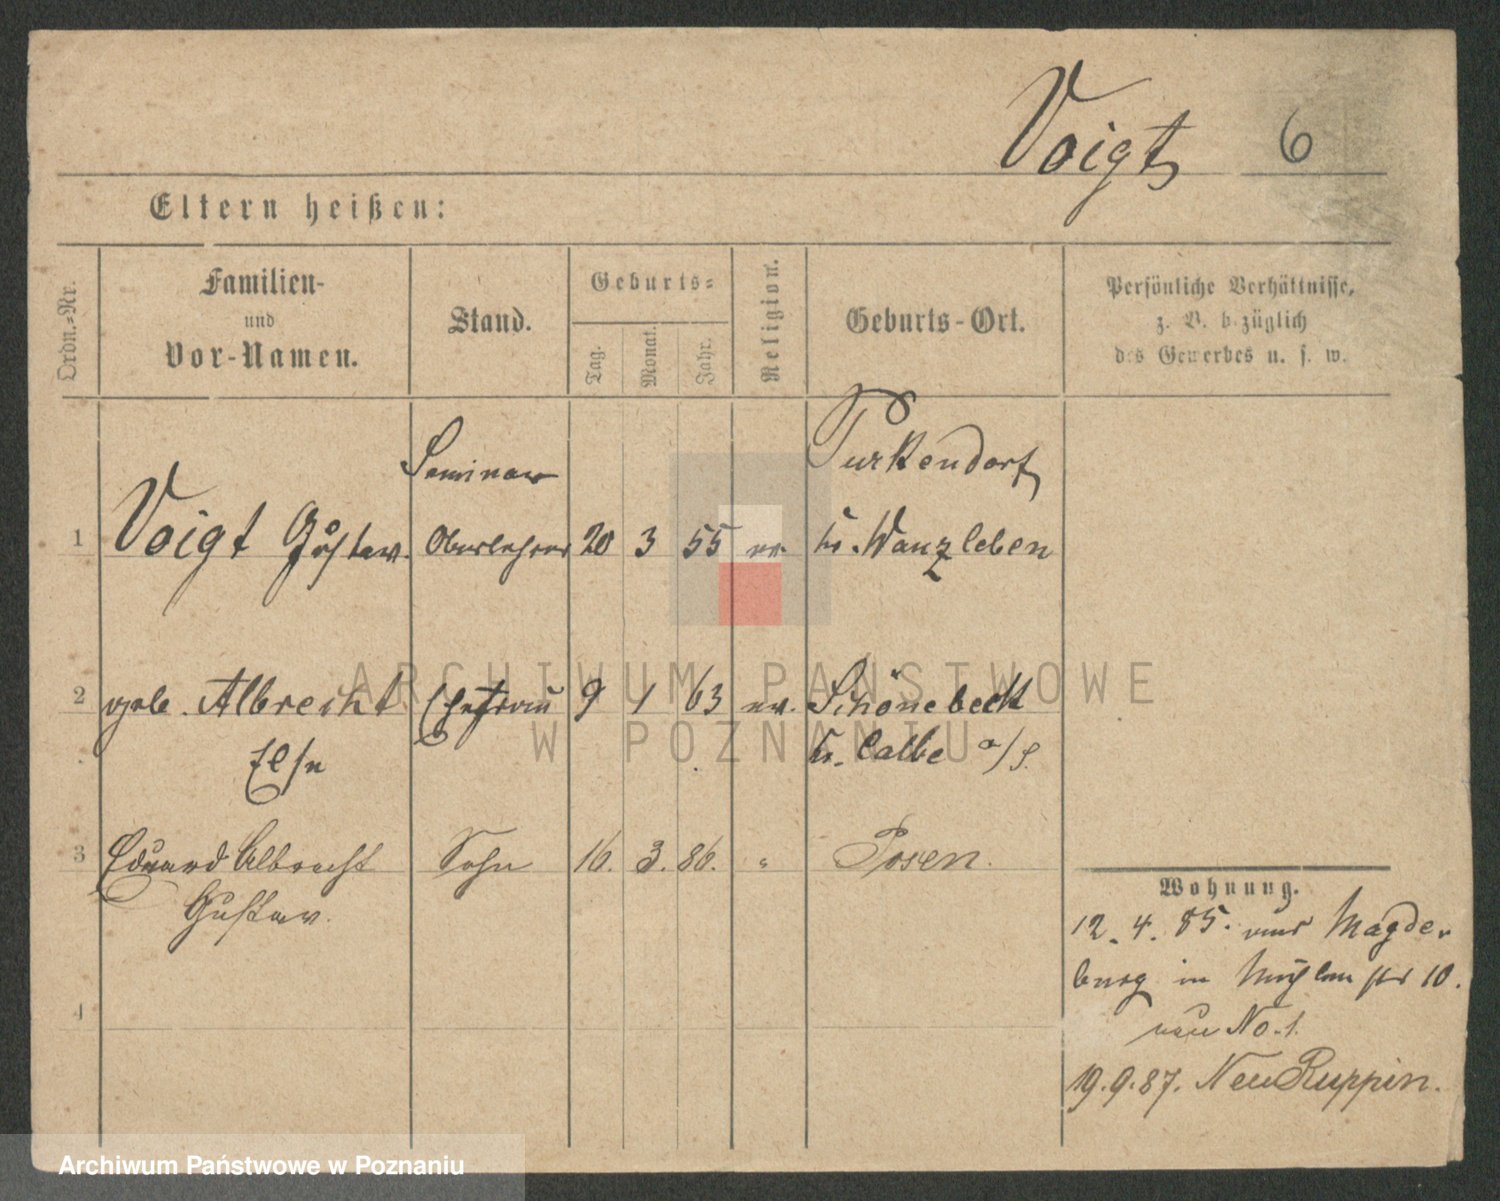 Voigt 6
Eltern heißen:
Ordn.-Nr.
Familien-
und
Vor-Namen.
Stand.
Geburts-
Tag.
Monat.
Jahr.
Religion.
Geburts-Ort.
Persönliche Verhältnisse,
z. B. bezüglich
des Gewerbes u. s. w.
Seminar
1 Voigt Gustav. Oberlehrer 20 3 55 ev. Kr. Wanzleben
2 geb. Albrecht Ehefrau 9 1 63 ev. Schönebeck
Else Kr. Calbe a/S.
3 Eduard Albrecht Sohn 16. 3. 86. " Posen.
Gustav.
4
Wohnung.
12. 4. 85. aus Magde-
burg in Mühlenstr 10.
neu No. 1.
19.9.87. Neu Ruppin.
ARCHIWUM PAŃSTWOWE
W POZNANIU
Archiwum Państwowe w Poznaniu